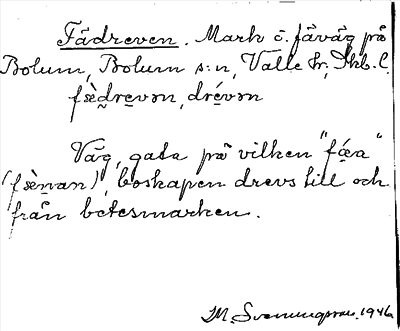 Fädreven. Mark o. fäväg på
Bolum, Bolum s:n, Valle hr, Skb. l.
fsèdrevən, drévən
Väg, gata på vilken "fœ́a"
(fsènan), boskapen drevs till och
från betesmarken.
M. Svenungsson. 1946